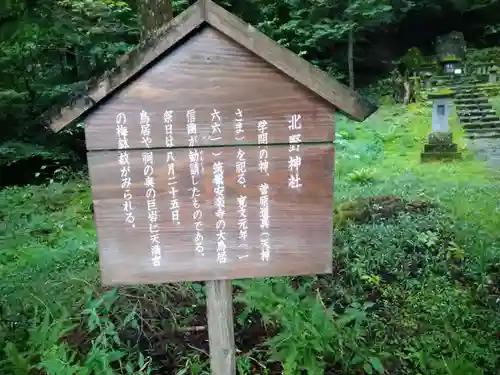 北野神社
学問の神、菅原道真（天神
さま）を祀る。寛文元年（一
六六一）、筑紫安楽寺の大鳥居
信岩が勧請したものである。
祭日は八月二十五日。
鳥居や祠の奥の巨岩に天満宮
の梅紋がみられる。